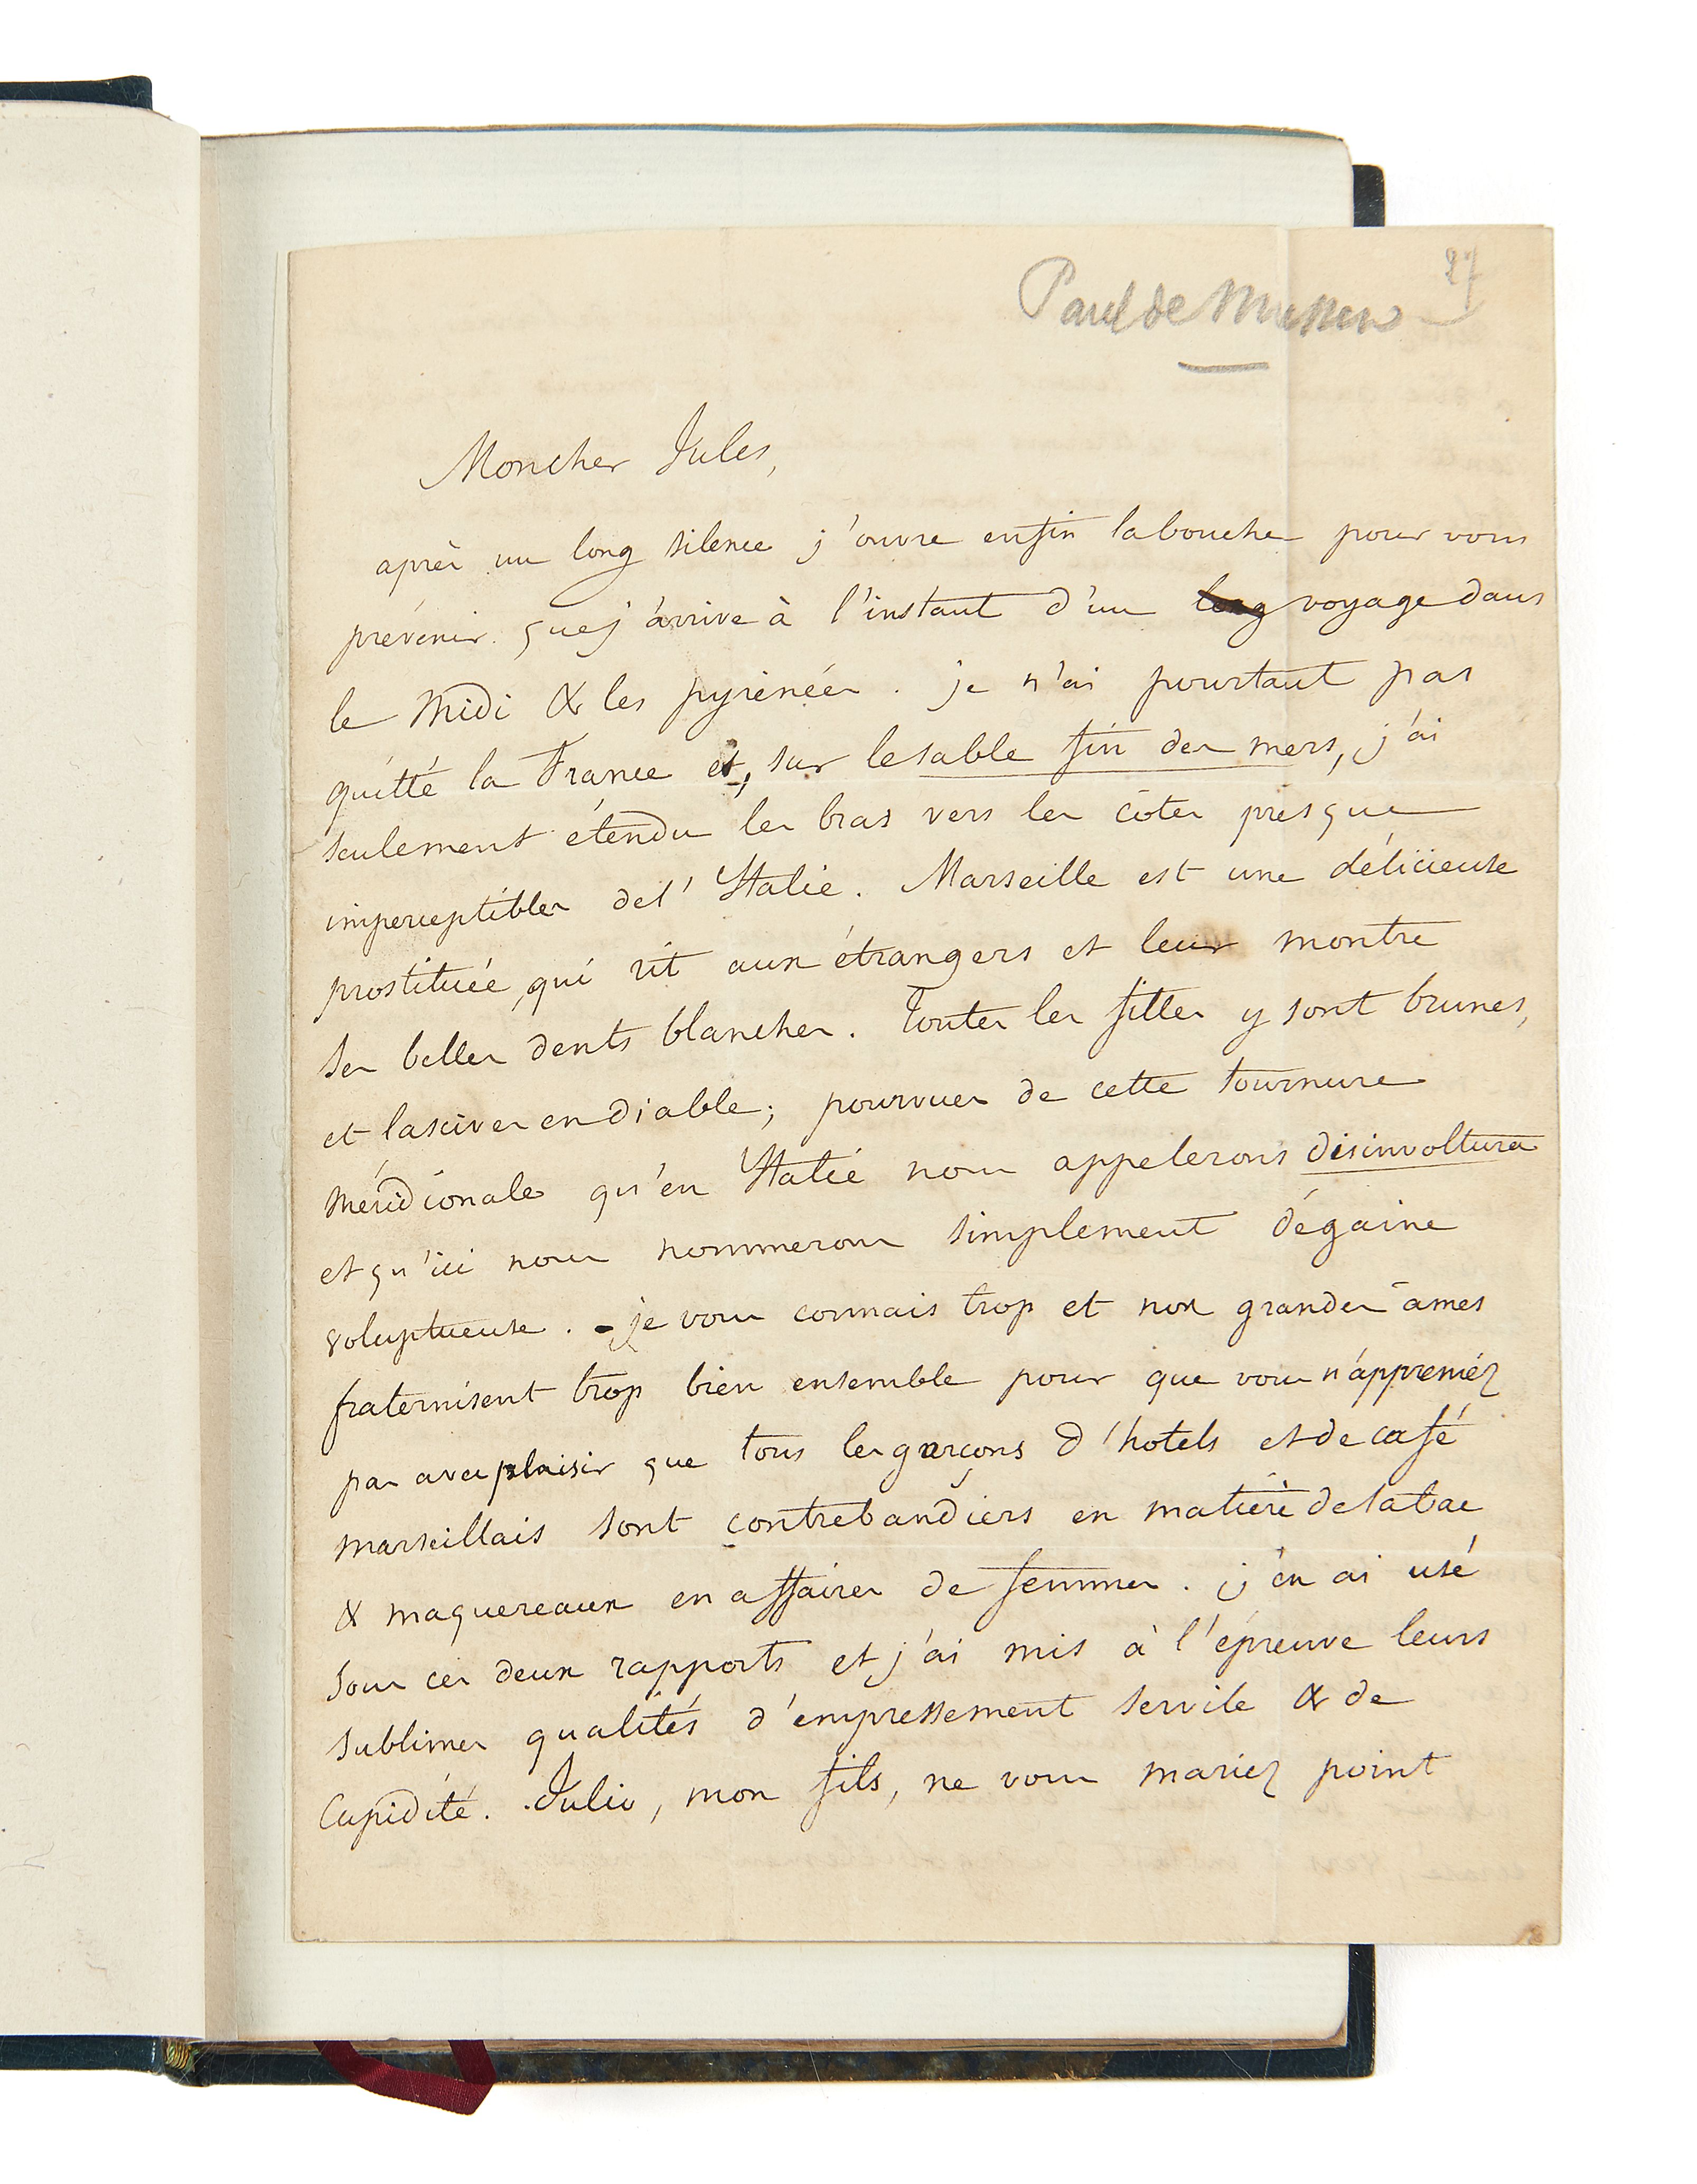 27
Paul de Musset
Mon cher Jules,
après un long silence j'ouvre enfin la bouche pour vous
prévenir que j'arrive à l'instant d'un long voyage dans
le Midi & les pyrénées. je n'ai pourtant pas
quitté la France et, sur le sable fin des mers, j'ai
seulement étendu les bras vers les côtes presque
imperceptibles de l'Italie. Marseille est une délicieuse
prostituée, qui rit aux étrangers et leur montre
ses belles dents blanches. Toutes les filles y sont brunes,
et lascives en diable; pourvues de cette tournure
méridionale qu'en Italie nous appelerons disinvoltura
et qu'ici nous nommerons simplement dégaine
voluptueuse. - je vous connais trop et nos grandes âmes
fraternisent trop bien ensemble pour que vous n'appreniez
pas avec plaisir que tous les garçons d'hotels et de café
marseillais sont contrebandiers en matière de tabac
& maquereaux en affaires de femmes. j'en ai usé
sous ces deux rapports et j'ai mis à l'épreuve leurs
sublimes qualités d'empressement servile & de
Cupidité. Julio, mon fils, ne vous mariez point